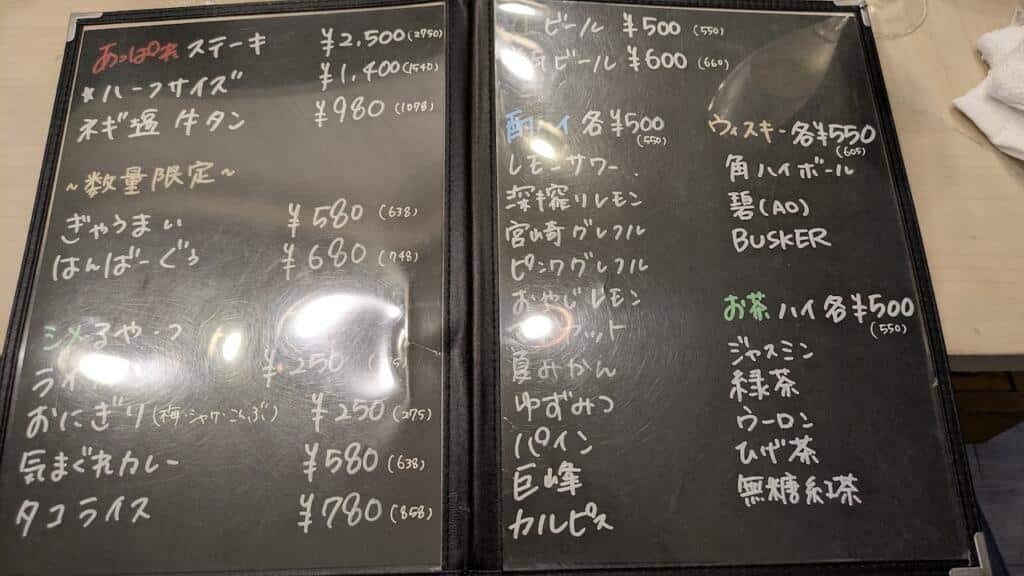 あっぱれステーキ ¥2,500 (2750)
*ハーフサイズ ¥1,400 (1540)
ネギ塩 牛タン ¥980 (1078)
~数量限定~
ぎゃうまい ¥580 (638)
はんばーぐぅ ¥680 (748)
シメ
ラ ¥250
おにぎり (梅・シャケ・こんぶ) ¥250 (275)
気まぐれカレー ¥580 (638)
タコライス ¥780 (858)
ビール ¥500 (550)
ビール ¥600 (660)
酎ハイ 各¥500
(550)
レモンサワー
深搾りレモン
宮崎グレフル
ピンクグレフル
おやじレモン
夏みかん
ゆずみつ
パイン
巨峰
カルピス
ウィスキー各¥550
(605)
角ハイボール
碧(AO)
BUSKER
お茶ハイ 各¥500
(550)
ジャスミン
緑茶
ウーロン
ひげ茶
無糖紅茶